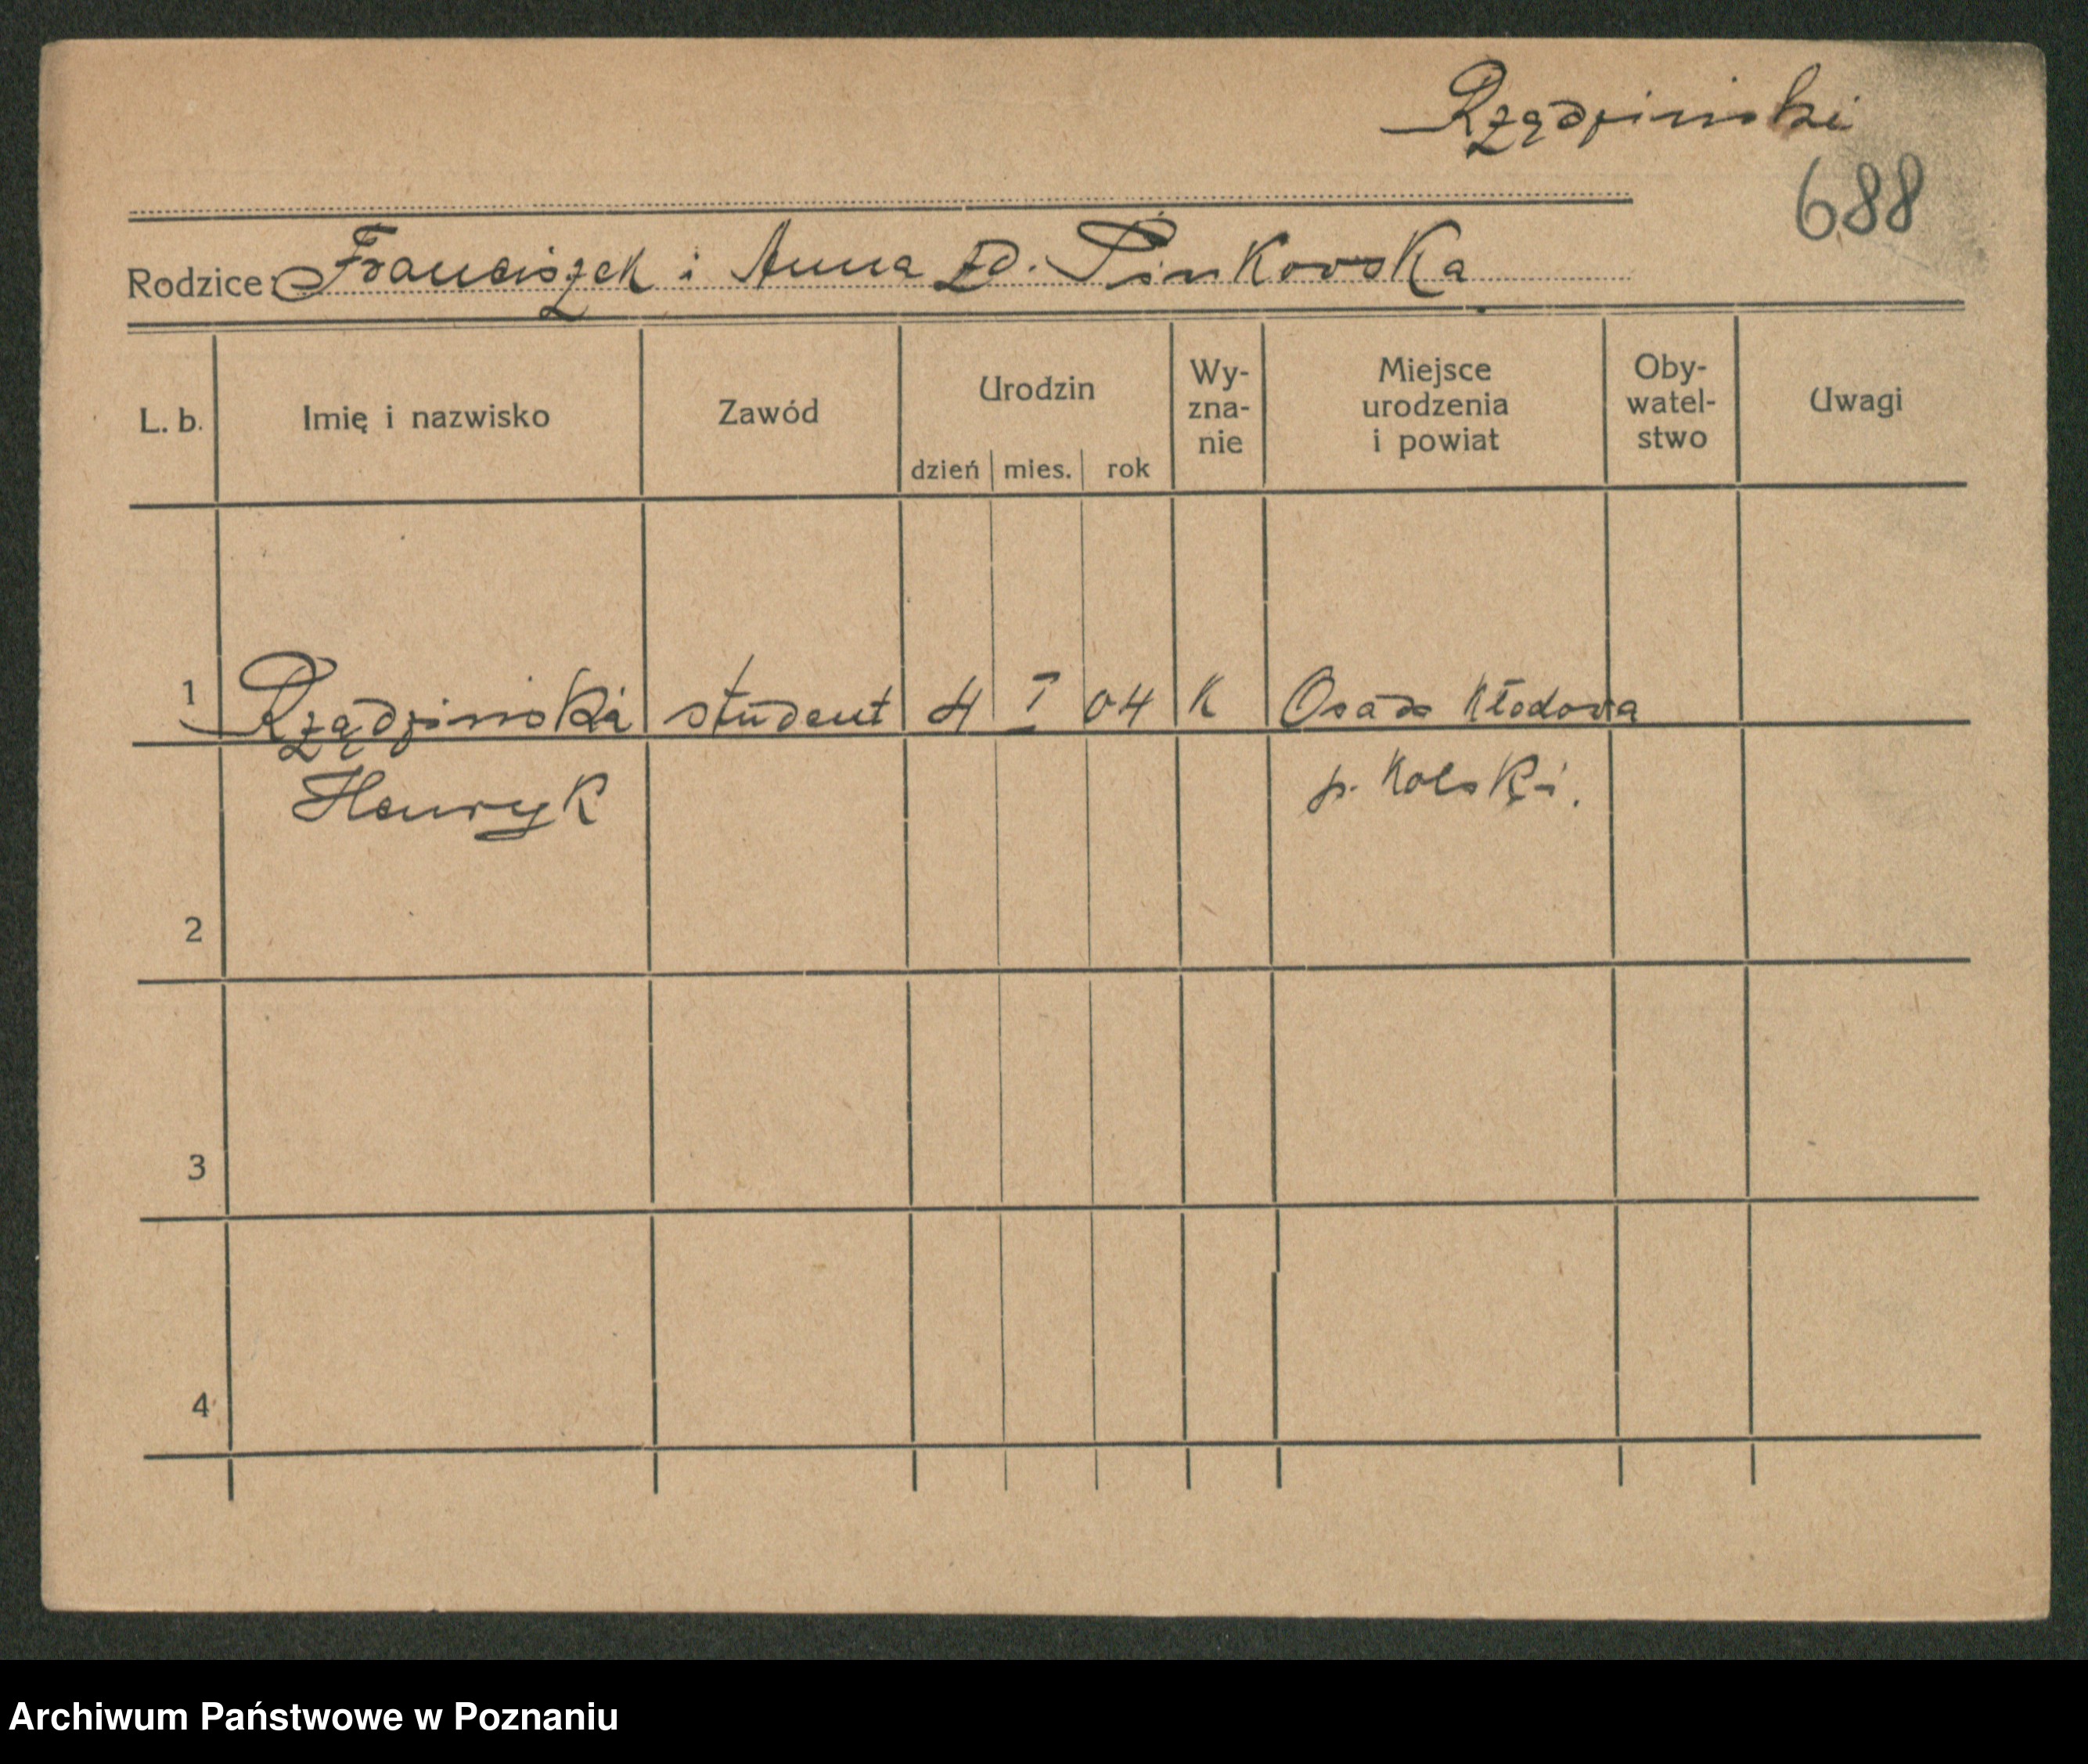 Rządziński
688
Rodzice: Franciszek i Anna zd. Pinkowska
L. b. Imię i nazwisko Zawód Urodzin dzień mies. rok Wy-zna-nie Miejsce urodzenia i powiat Oby-watel-stwo Uwagi
1 Rządziński student 4 I 04 K Osada Kłodowa
Henryk p. Kolski.
2
3
4
Archiwum Państwowe w Poznaniu